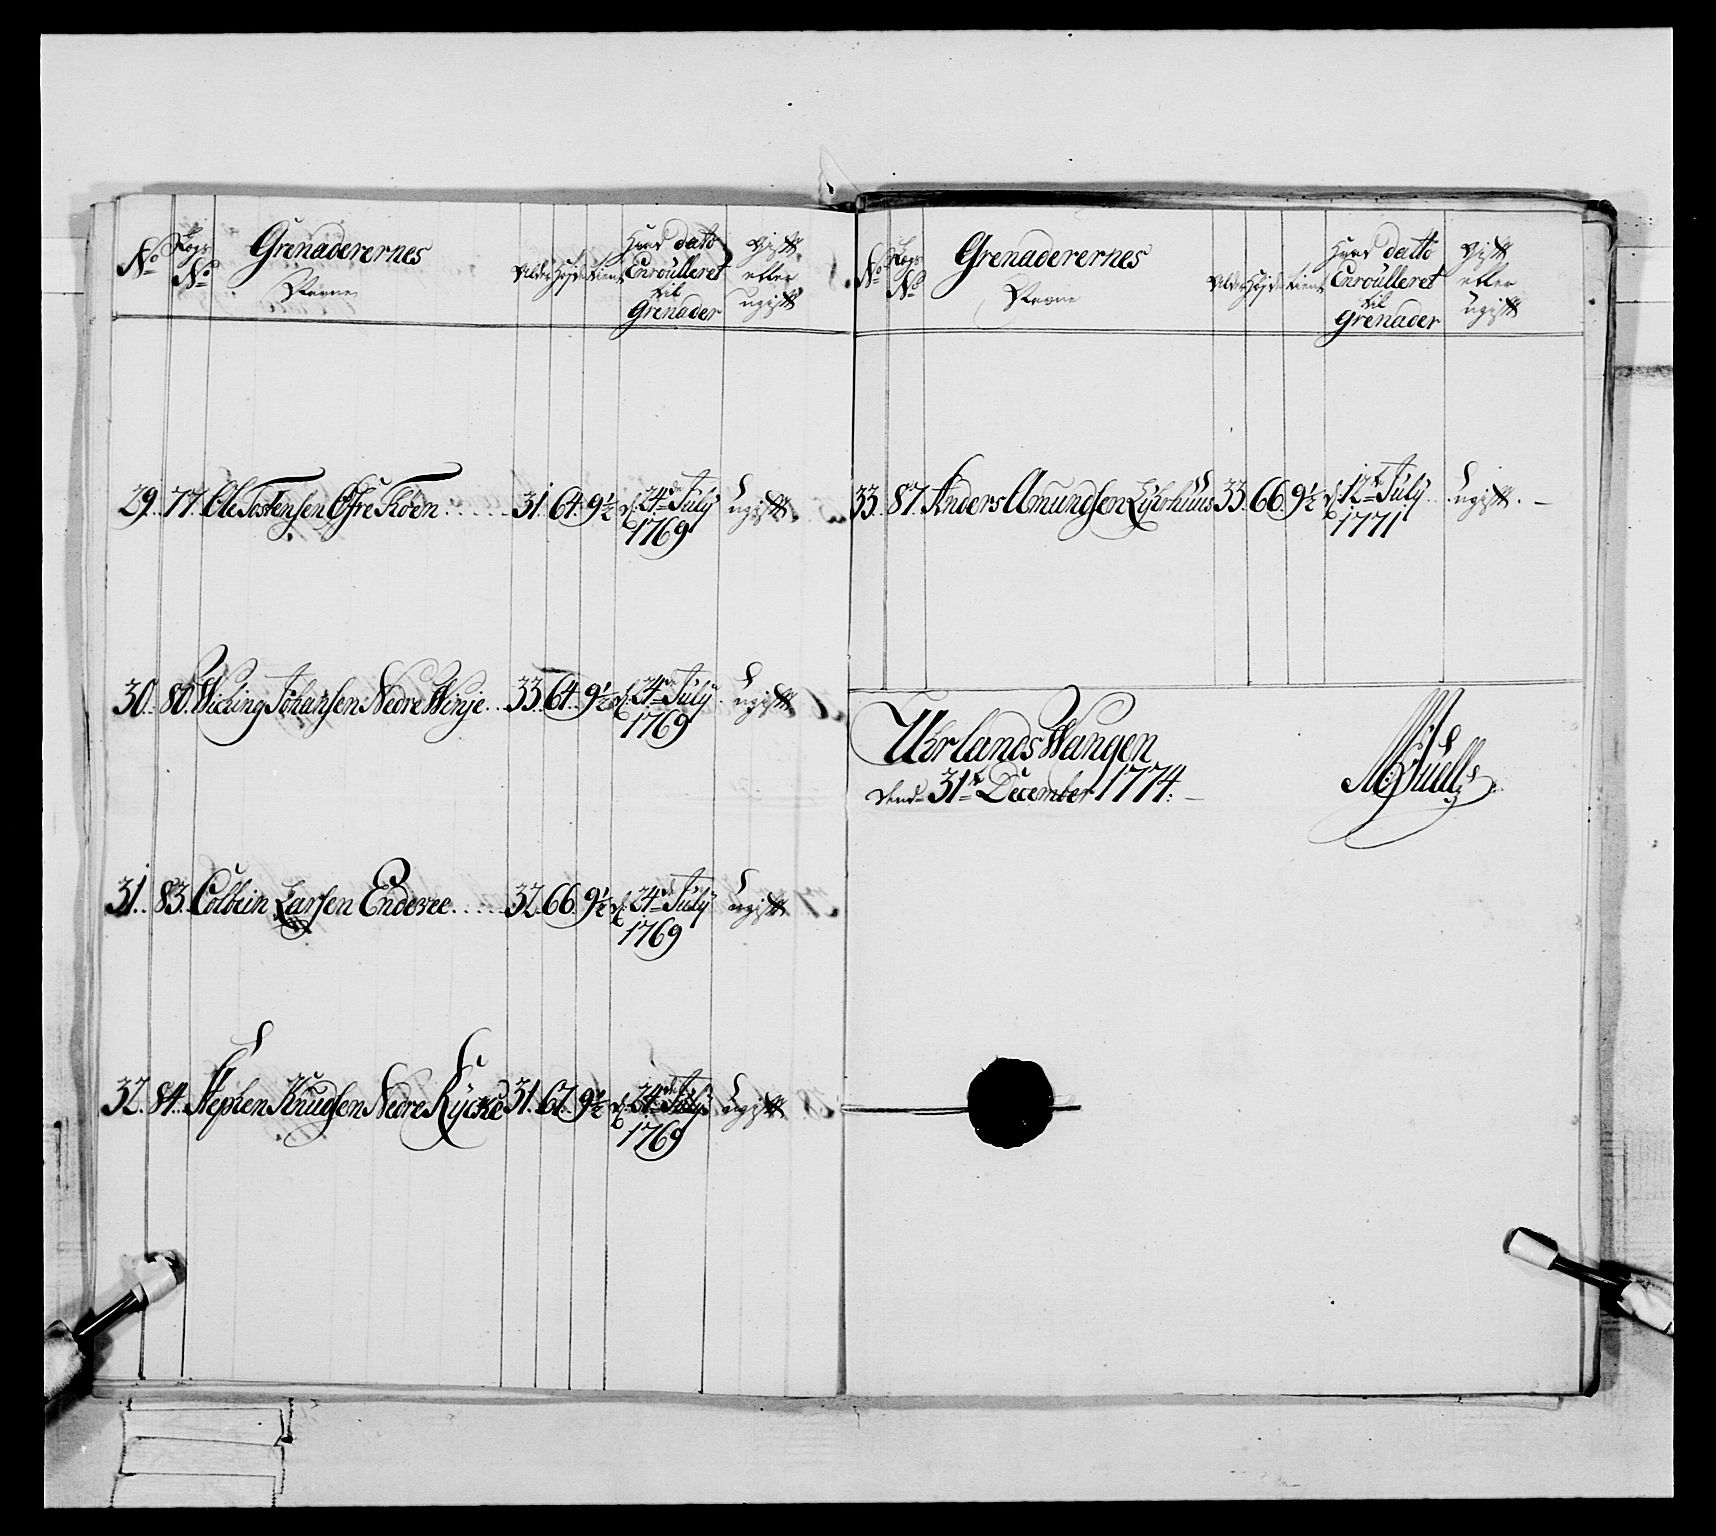 No Logs No Grenaderernes Navne Alder Højde tient Hvad datto Enroulleret til Grenader Gift eller ugift
29. 77. Ole Tostensen Øfre 31. 64. 9½ d. 24de July 1769 ugift
30. 80. Wiching Johansen Nedre Winje. 33. 64. 9½ d. 24de July 1769 ugift
31. 83. Colbein Larsen Enderee 32. 66. 9½ d. 24de July 1769 ugift
32. 84. Stephen Knudsen Nedre 31. 67. 9½ d. 24de July 1769 ugift
No Logs No Grenaderernes Navne Alder Højde tient Hvad datto Enroulleret til Grenader Gift eller ugift
33. 87. Anders Amundsen 33. 66. 9½ d. 12te July 1771 ugift. —
Uhrlands Wangen
dend 31te December 1774. —